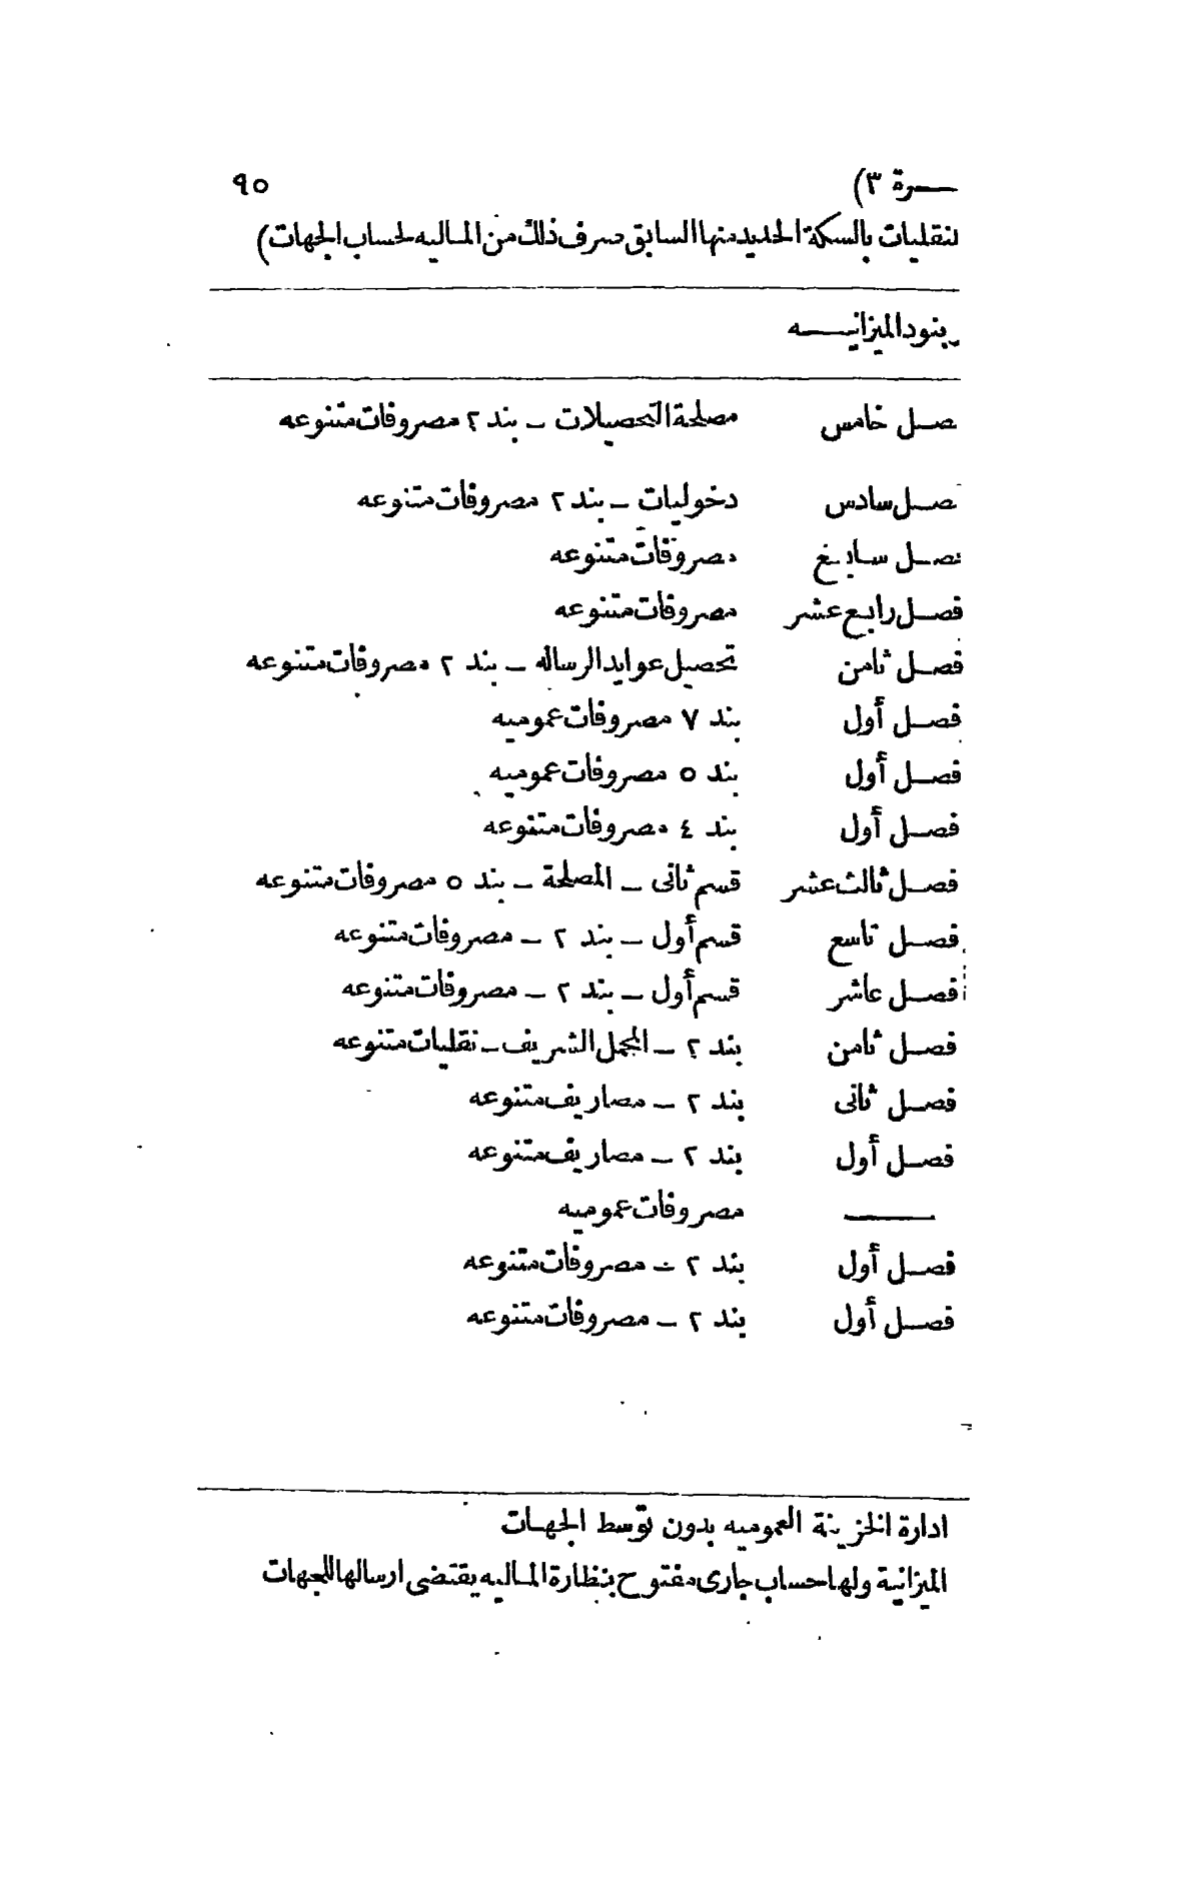 ـرة ٣) ٩٥
لنقليات بالسكة الحديد منها السابق صرف ذلك من الماليه لحساب الجهات)
بنود الميزانيـه
صل خامس مصلحة التحصيلات – بند ٢ مصروفات متنوعه
صل سادس دخوليات – بند ٢ مصروفات متنوعه
صل سابع مصروفات متنوعه
فصل رابع عشر مصروفات متنوعه
فصل ثامن تحصيل عوايد الرساله – بند ٢ مصروفات متنوعه
فصل أول بند ٧ مصروفات عموميه
فصل أول بند ٥ مصروفات عموميه
فصل أول بند ٤ مصروفات متنوعه
فصل ثالث عشر قسم ثانى – المصلحة – بند ٥ مصروفات متنوعه
فصل تاسع قسم أول – بند ٢ – مصروفات متنوعه
فصل عاشر قسم أول – بند ٢ – مصروفات متنوعه
فصل ثامن بند ٢ – المحمل الشريف – نقليات متنوعه
فصل ثانى بند ٢ – مصاريف متنوعه
فصل أول بند ٢ – مصاريف متنوعه
—— مصروفات عموميه
فصل أول بند ٢ – مصروفات متنوعه
فصل أول بند ٢ – مصروفات متنوعه
ادارة الخزينة العموميه بدون توسط الجهات
الميزانية ولها حساب جارى مفتوح بنظارة الماليه يقتضى ارسالها للجهات